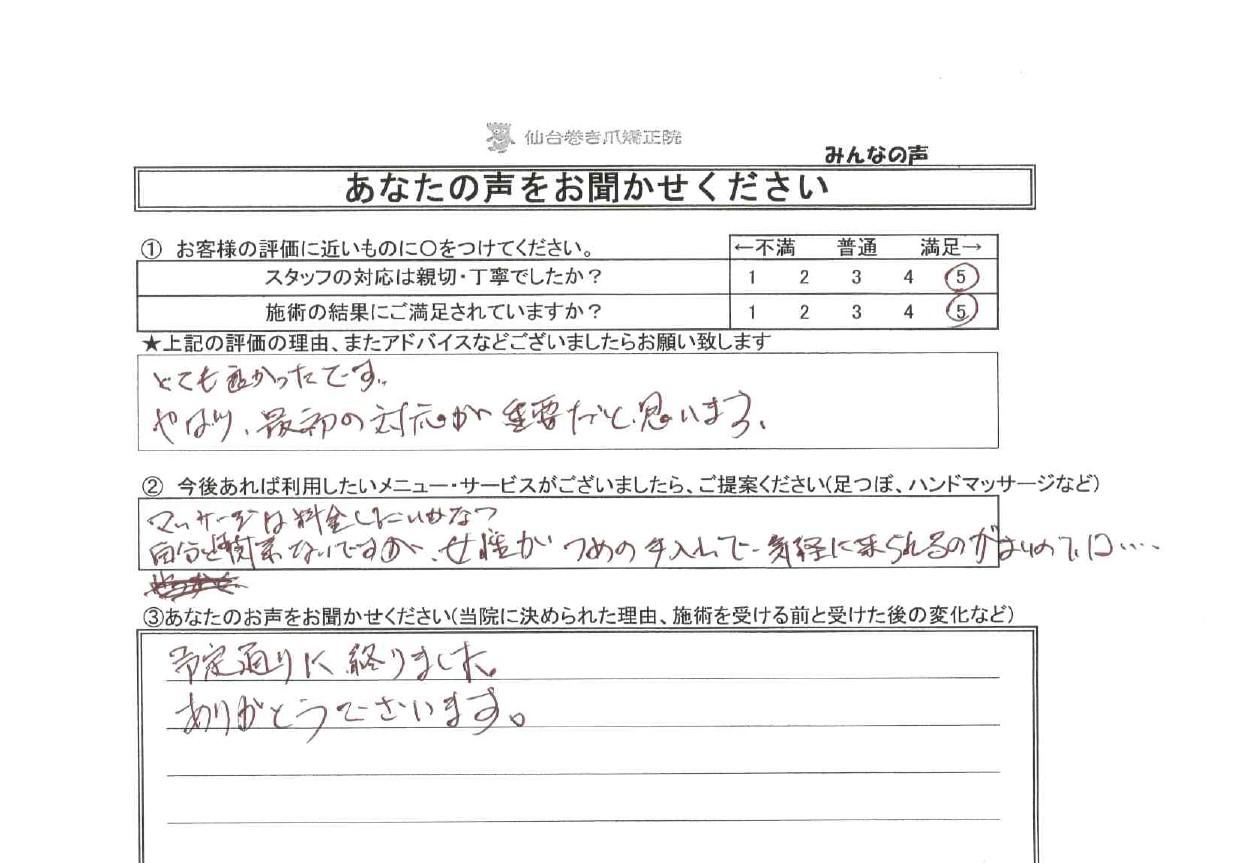 仙台巻き爪矯正院
みんなの声
あなたの声をお聞かせください
① お客様の評価に近いものに〇をつけてください。 ←不満 普通 満足→
スタッフの対応は親切・丁寧でしたか？ 1 2 3 4 5
施術の結果にご満足されていますか？ 1 2 3 4 5
★上記の評価の理由、またアドバイスなどございましたらお願い致します
とても良かったです。
やはり、最初の対応が重要だと思います。
② 今後あれば利用したいメニュー・サービスがございましたら、ご提案ください(足つぼ、ハンドマッサージなど)
マッサージは料金
自分と関係ないですが、女性がつめの手入れで気軽に来られるのが
③あなたのお声をお聞かせください(当院に決められた理由、施術を受ける前と受けた後の変化など)
予定通りに終りました。
ありがとうございます。